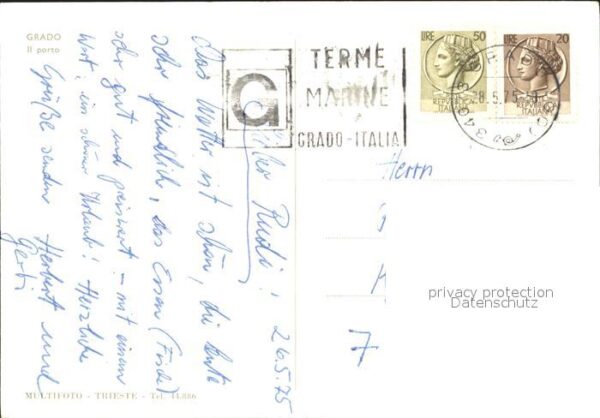 GRADO
Il porto
26.5.75
Lieber Rudi!
Das Wetter ist schön, die Leute
sehr freundlich, das Essen (Fische)
sehr gut und preiswert – mit einem
Wort, ein schöner Urlaub! Herzliche
Grüße senden Herbert und
Gerti
MULTIFOTO - TRIESTE - Tel. 44.886
G
TERME
MARINE
GRADO-ITALIA
LIRE 50
REPUBBLICA
ITALIANA
LIRE 20
REPUBBLICA
ITALIANA
28.5.75
Herrn
7
privacy protection
Datenschutz